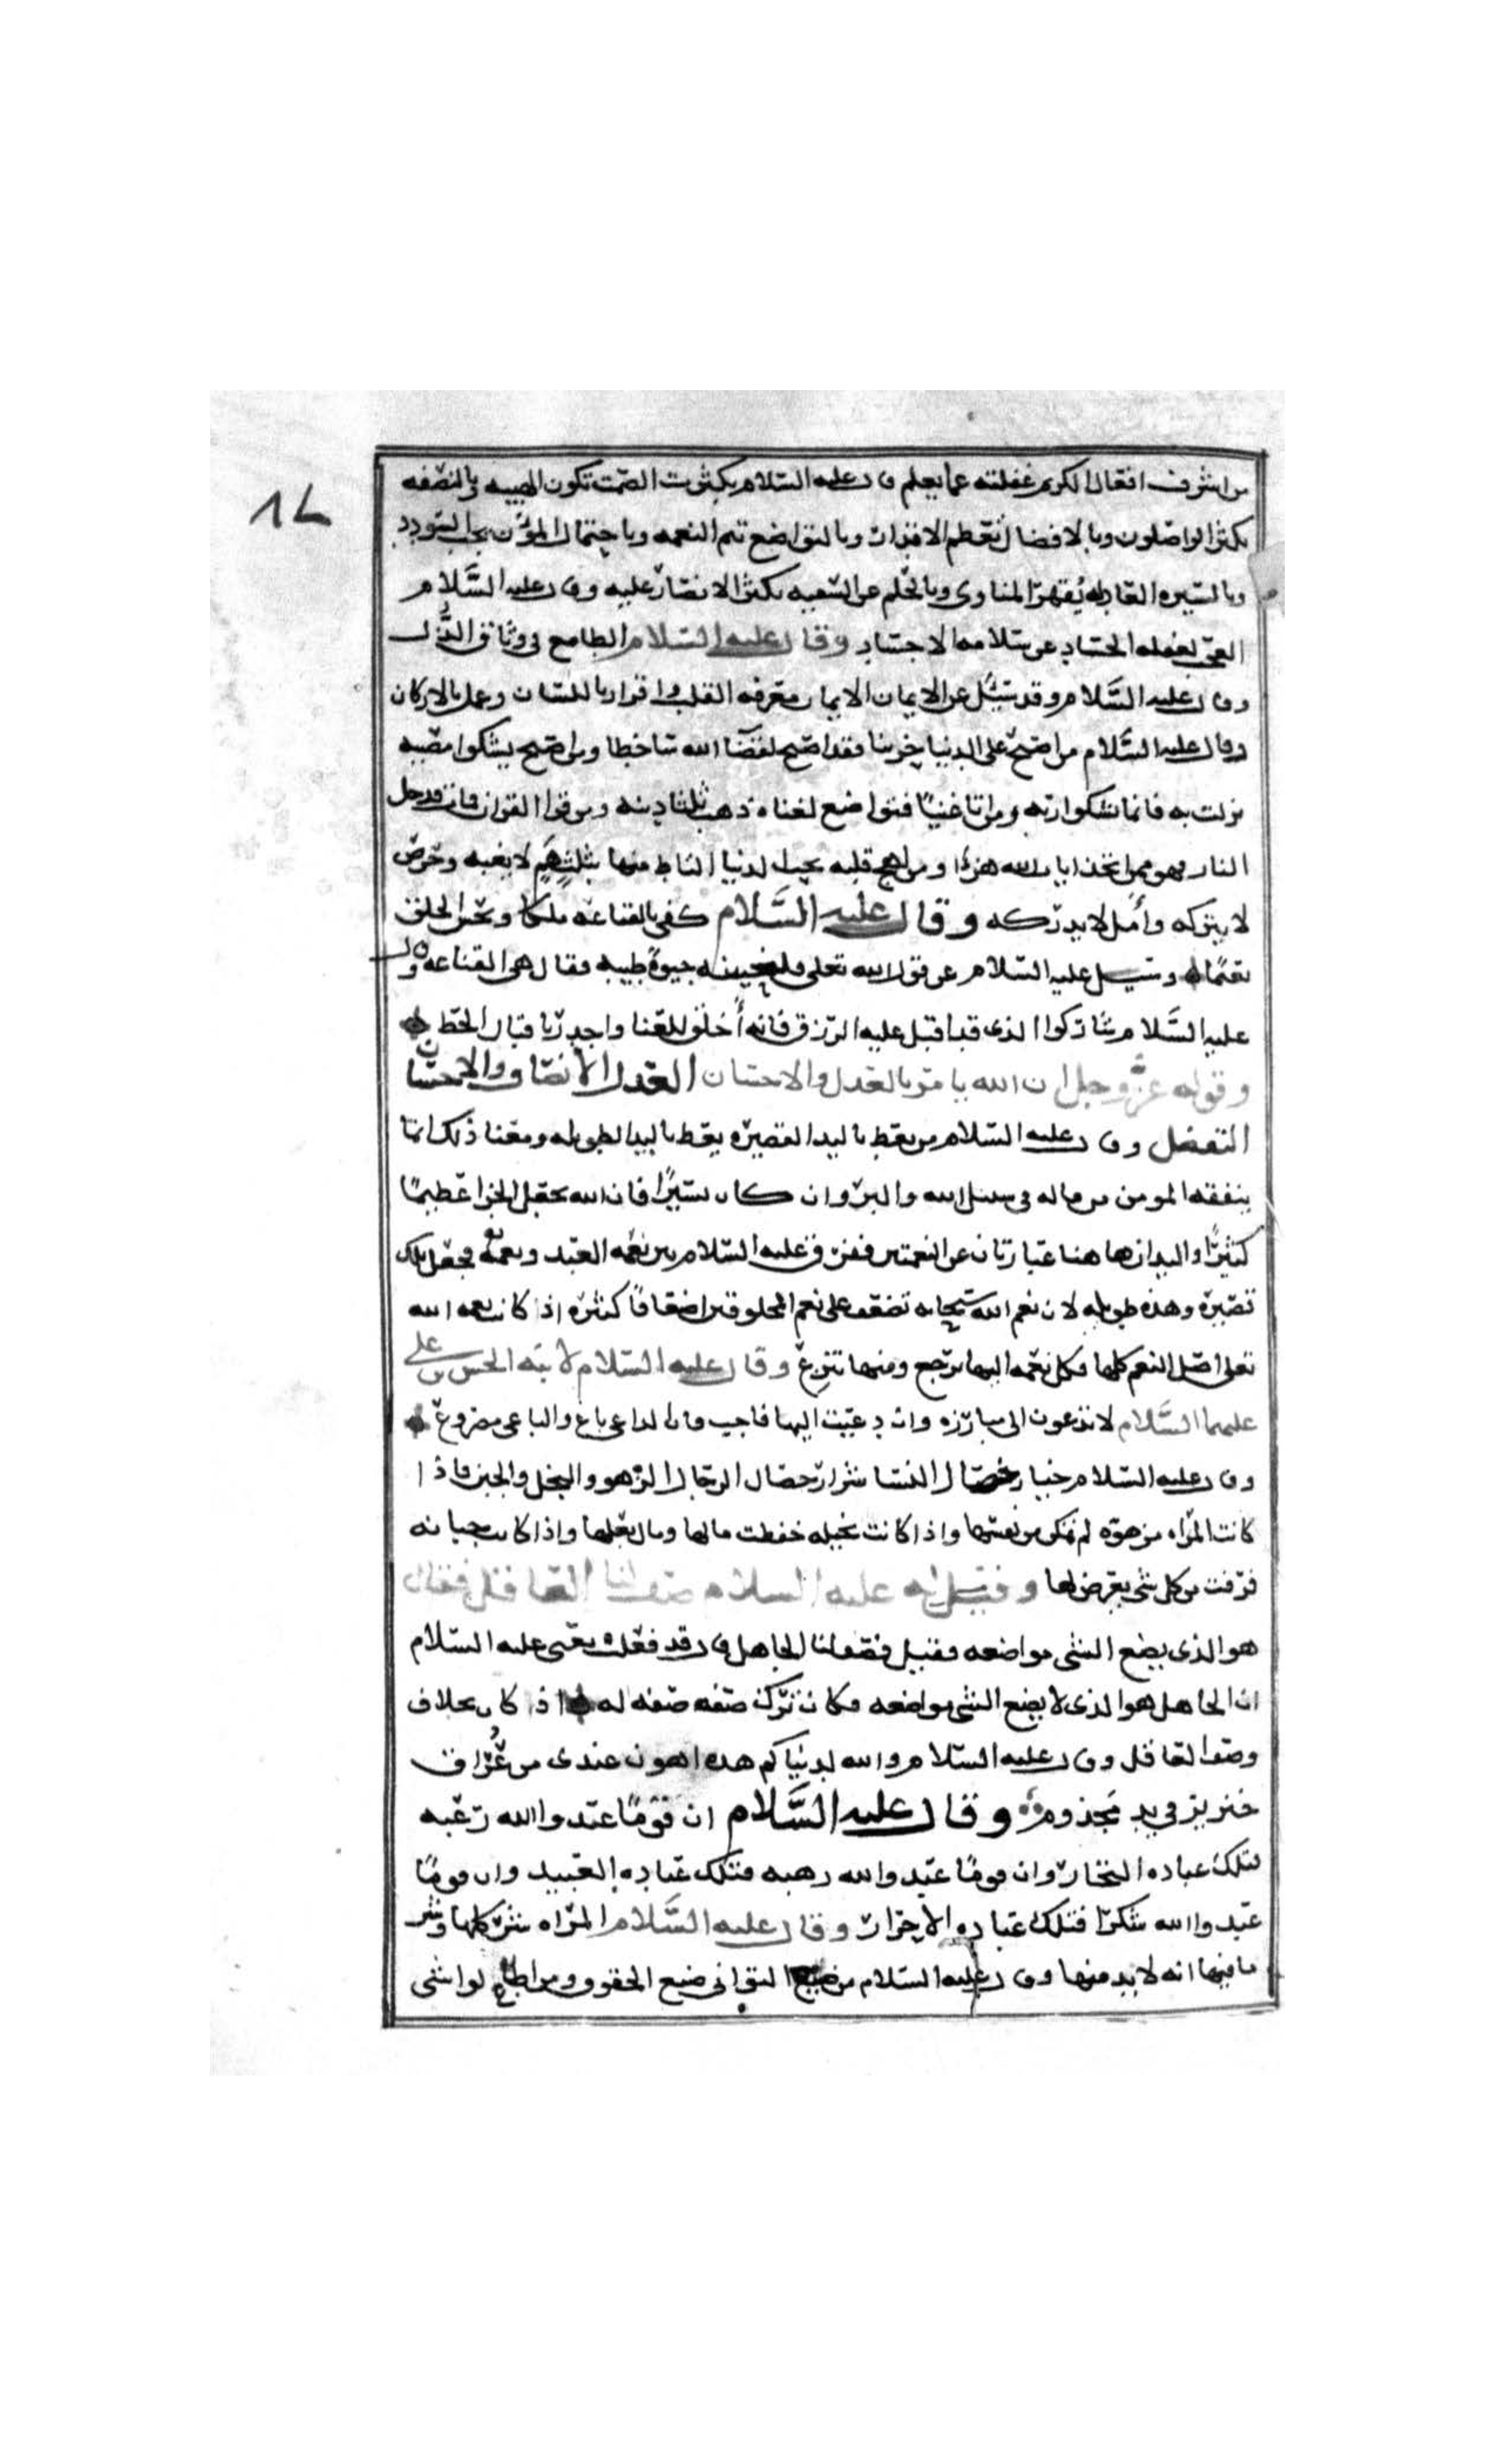 من اشرف افعال الكريم غفلته عما يعلم وقال عليه السلام بكثرت الصمت تكون الهيبه وبالنصفه
يكثر الواصلون وبالافضال تعظم الاقدار وبالتواضع تتم النعمه وباحتمال المؤن يجب السودد
وبالسيره العادله يُقهر المناوى وبالحلم عن السفيه يكثر الانصار عليه وقال عليه السَّلام
العجب لغفله الحساد عن سلامه الاجساد وقال عليه السلام الطامع فى وثاق الذُّل
وقال عليه السَّلام وقد سئل عن الايمان الايمان معرفه القلب واقرار باللسان وعمل بالاركان
وقال عليه السَّلام من اصبح على الدنيا حزينا فقد اصبح لقضآ الله ساخطا ومن اصبح يشكوا مصيبه
نزلت به فانما يشكوا ربه ومن اتا غنيًا فتواضع لغناه ذهب ثلثا دينه ومن قرا القران فمات فدخل
النار فهو ممن اتخذ ايات الله هزؤا ومن لهج قلبه بحب الدنيا التاط منها بثلاث هَمٍ لا يغبه وحرص
لا يتركه وأمل لا يدركه وقال عليه السَّلام كفى بالقناعه ملكا وبحسن الخلق
نعيمًا وسيل عليه السلام عن قول الله تعلى فلنحيينه حيوةً طيبه فقال هى القناعه وقال
عليه السَّلام شاركوا الذى قد اقبل عليه الرزق فانه أخلق للغنا واجدر باقبال الحظ
وقوله عزّ وجل ان الله يامر بالعدل والاحسان العدل الانصاف والاحسان
التفضل وقال عليه السلام من يعط باليد القصيره يعط باليد الطويله ومعنا ذلك ان ما
ينفقه المومن من ماله فى سبيل الله والبرّ وان كان يسيرًا فان الله يجعل الجزا عظيمًا
كثيرًا واليدان هاهنا عبارتان عن النعمتين ففرّق عليه السلام بين نعمه العبد ونعمه فجعل تلك
قصيرة وهذه طويله لان نعم الله سبحانه تضعف على نعم المخلوقين اضعافًا كثيره اذا كانت نعمه الله
تعلى اصل النعم كلها فكل نعمه اليها ترجع ومنها تنزع وقال عليه السلام لابنه الحسن بن على
عليهما السَّلام لا تدعون الى مبارزه وان دعيت اليها فاجب فان الداعى باغ والباغى مصروع
وقال عليه السلام خيار خصال النسا شرار خصال الرجال الزهو والبخل والجبن فاذا
كانت المراه مزهوه لم تمكن من نفسها واذا كانت بخيله حفظت مالها ومال بعلها واذا كانت جبانه
فرقت من كل شى يعرض لها وقيل له عليه السلام صف لنا العاقل فقال
هو الذى يضع الشى مواضعه فقيل فصف لنا الجاهل قال قد فعلت يعنى عليه السلام
ان الجاهل هو الذى لا يضع الشى مواضعه فكان ترك صفه صفه له اذ كان بخلاف
وصف العاقل وقال عليه السلام والله لدنياكم هذه اهون عندى من عُرّاق
خنزير فى يد مجذوم وقال عليه السَّلام ان قومًا عبدوا الله رغبه
فتلك عباده التجار وان قومًا عبدوا الله رهبه فتلك عباده العبيد وان قومًا
عبدوا الله شكرًا فتلك عباده الاحرار وقال عليه السَّلام المراه شرّ كلها وشر
ما فيها انه لا بد منها وقال عليه السلام من اطاع التوانى ضيع الحقوق ومن اطاع الواشى